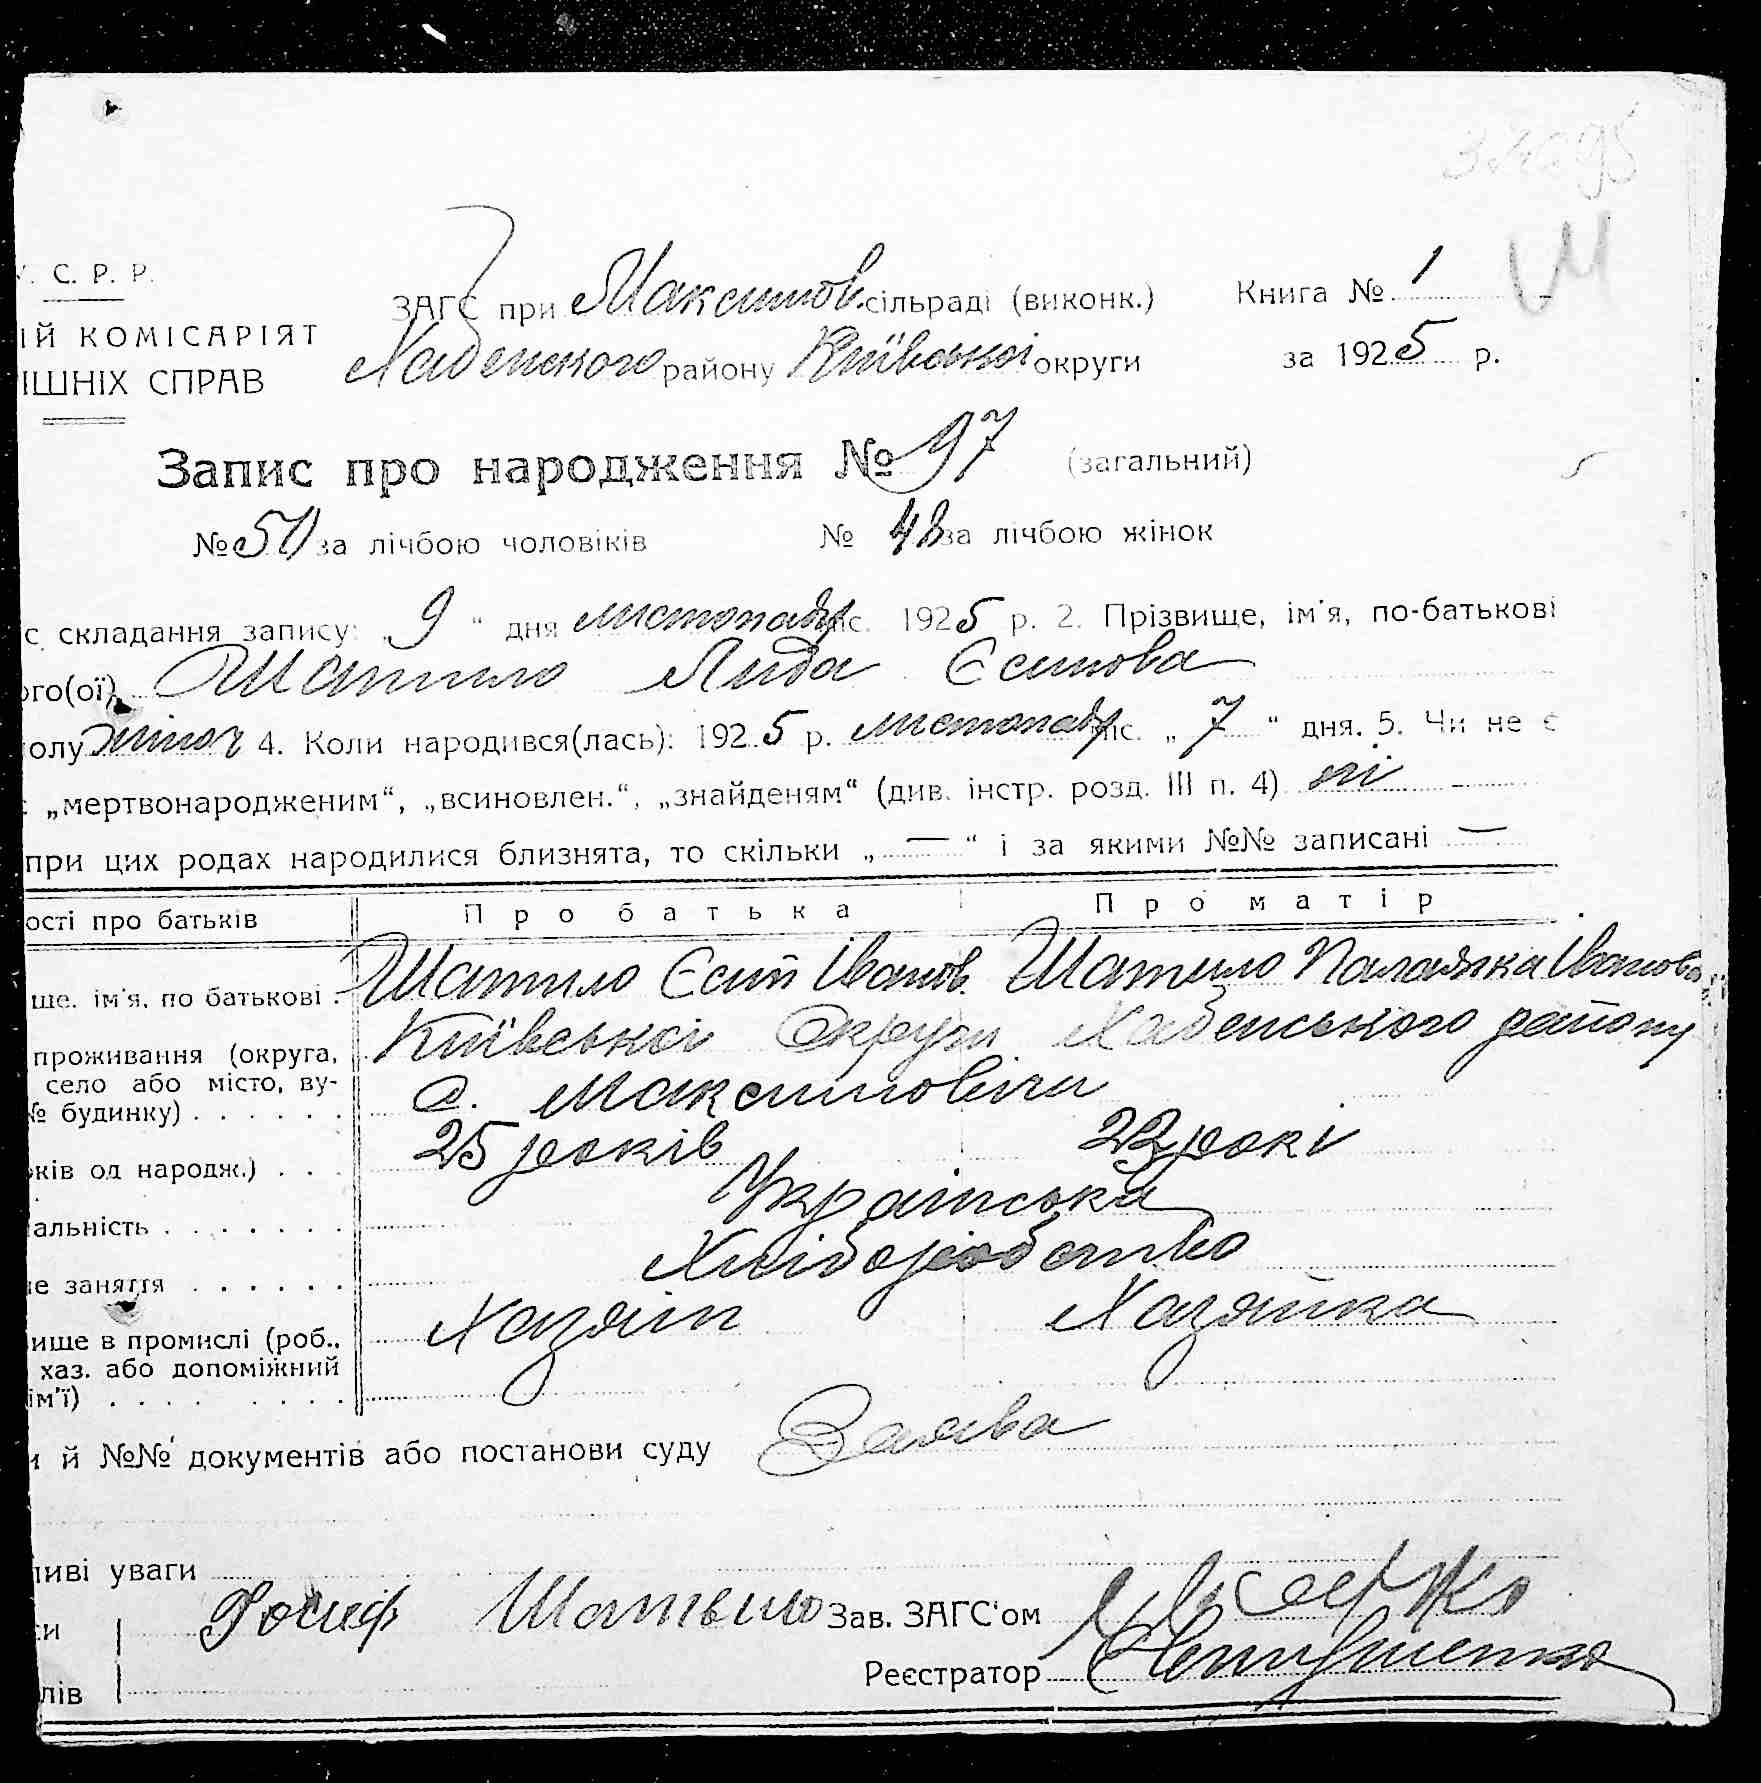 С. Р. Р.
ЗАГС при Максимов. сільраді (виконк.) Книга № 1
ІЙ КОМІСАРІЯТ
Хабенского району Київської округи за 1925 р.
ІШНІХ СПРАВ
Запис про народження № 97 (загальний)
№ за лічбою чоловіків № 48 за лічбою жінок
с складання запису: „9“ дня листопада міс. 1925 р. 2. Прізвище, ім'я, по-батькові
ого(ої) Шатило Лида Єсипова
олу жіноч 4. Коли народився(лась): 1925 р. листопада міс. „7“ дня. 5. Чи не є
„мертвонародженим“, „всиновлен.“, „знайденям“ (див. інстр. розд. III п. 4) ні
при цих родах народилися близнята, то скільки „—“ і за якими №№ записані —
ості про батьків Про батька Про матір
ше. ім'я, по батькові . Шатило Єсип Іванов. Шатило Палажка Іванова
проживання (округа, Київської Округи Хабенського району
село або місто, ву-
№ будинку) . . . . . . с. Максимовічи
ків од народж.) . . . 25 років 23 рокі
альність . . . . . . . Українська
е заняття . . . . . . Хліборобство
ище в промислі (роб., Хазяїн Хазяйка
хаз. або допоміжний
ім'ї) . . . . . . . .
и й №№ документів або постанови суду Заява
ливі уваги
си Иосиф Шатыло Зав. ЗАГС'ом
лів Реєстратор